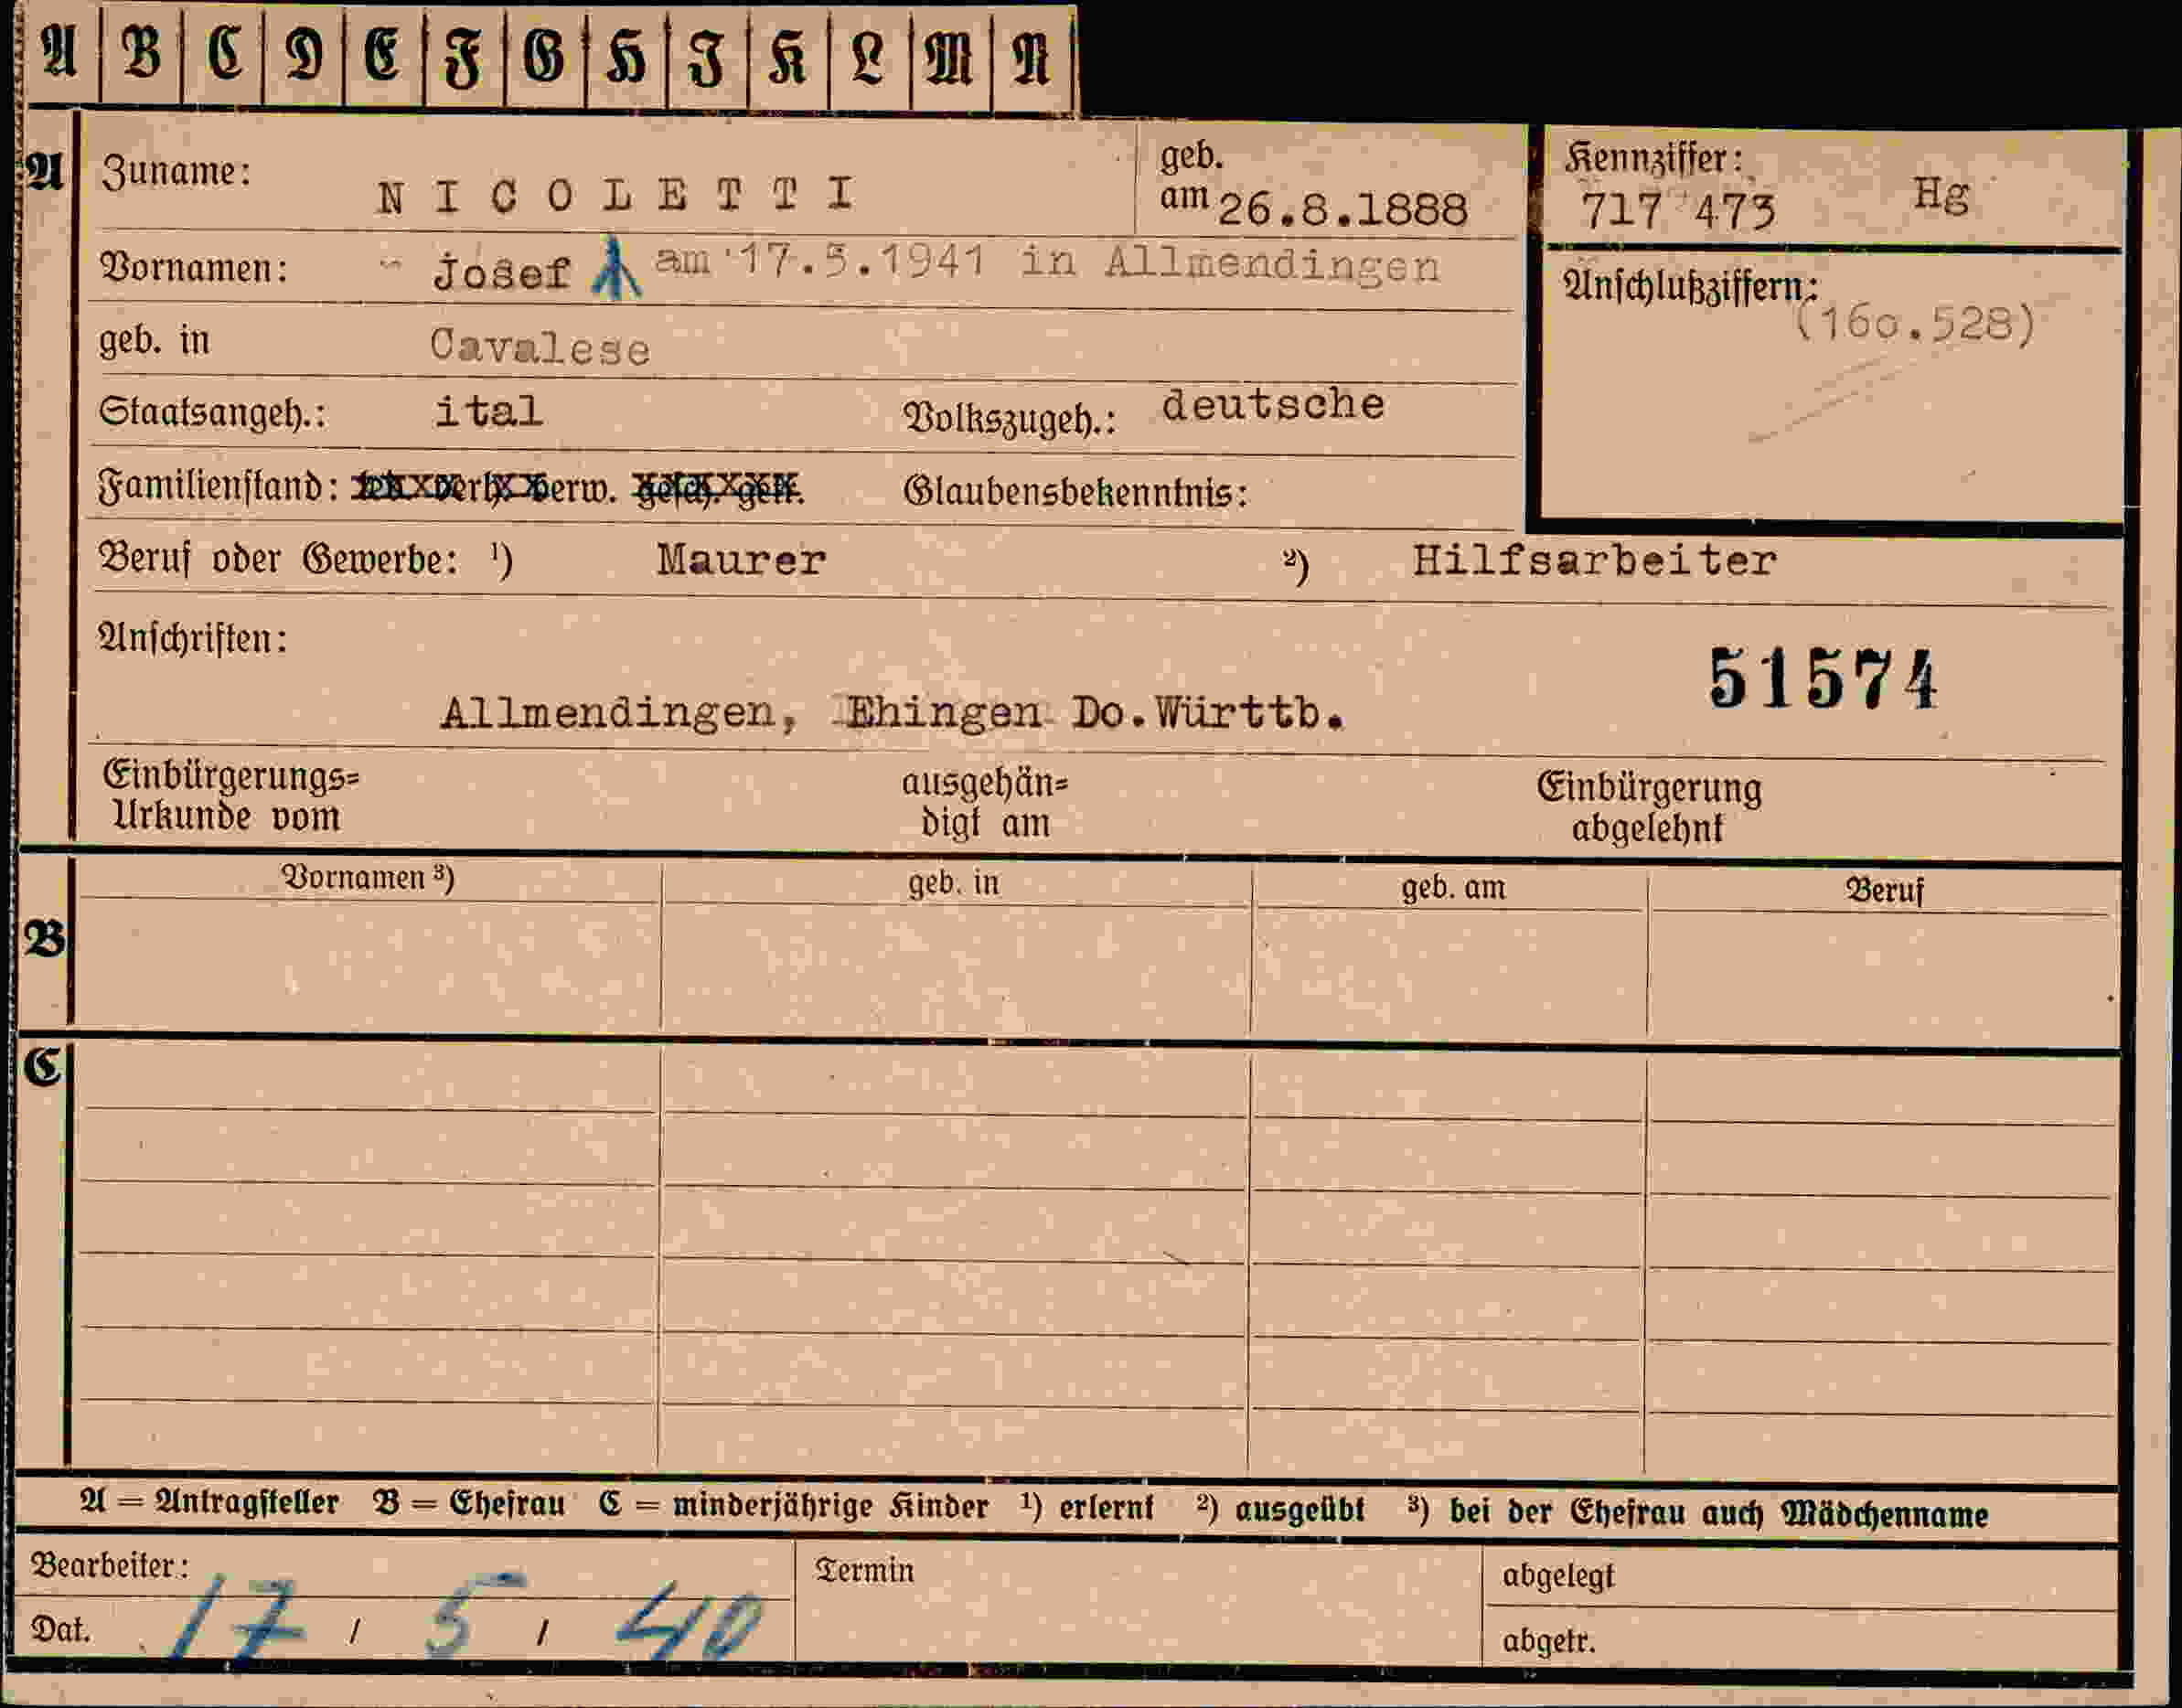 A B C D E F G H I K L M N
A Zuname: NICOLETTI geb. am 26.8.1888 Kennziffer: 717 473 Hg
Vornamen: Josef am 17.5.1941 in Allmendingen Anschlußziffern: (160.528)
geb. in Cavalese
Staatsangeh.: ital Volkszugeh.: deutsche
Familienstand: verh. verw. gesch. Glaubensbekenntnis:
Beruf oder Gewerbe: ¹) Maurer ²) Hilfsarbeiter
Anschriften:
51574
Allmendingen, Ehingen Do.Württb.
Einbürgerungs= ausgehän= Einbürgerung
Urkunde vom digt am abgelehnt
Vornamen ³) geb. in geb. am Beruf
B
C
A = Antragsteller B = Ehefrau C = minderjährige Kinder ¹) erlernt ²) ausgeübt ³) bei der Ehefrau auch Mädchenname
Bearbeiter: Termin abgelegt
Dat. 17 / 5 / 40 abgetr.